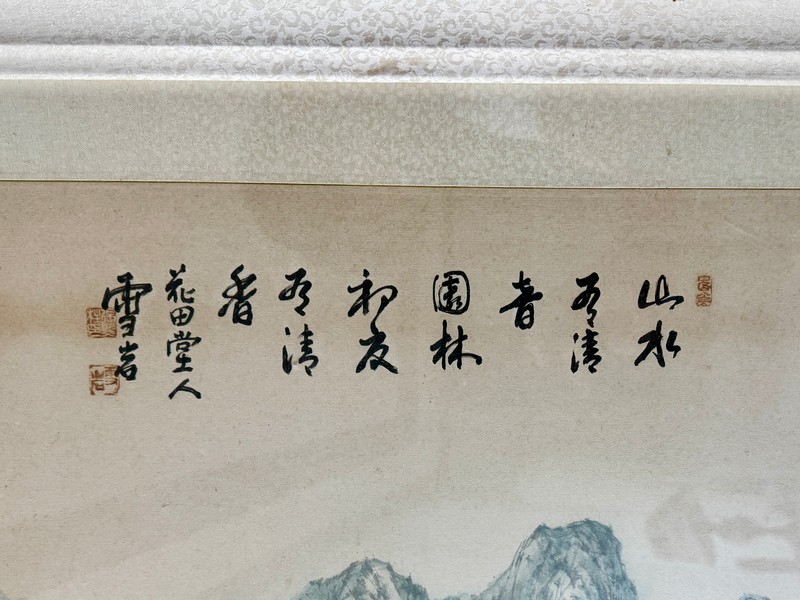 山水
有清
音
園林
初夏
有清
香
花田堂人
雪岩